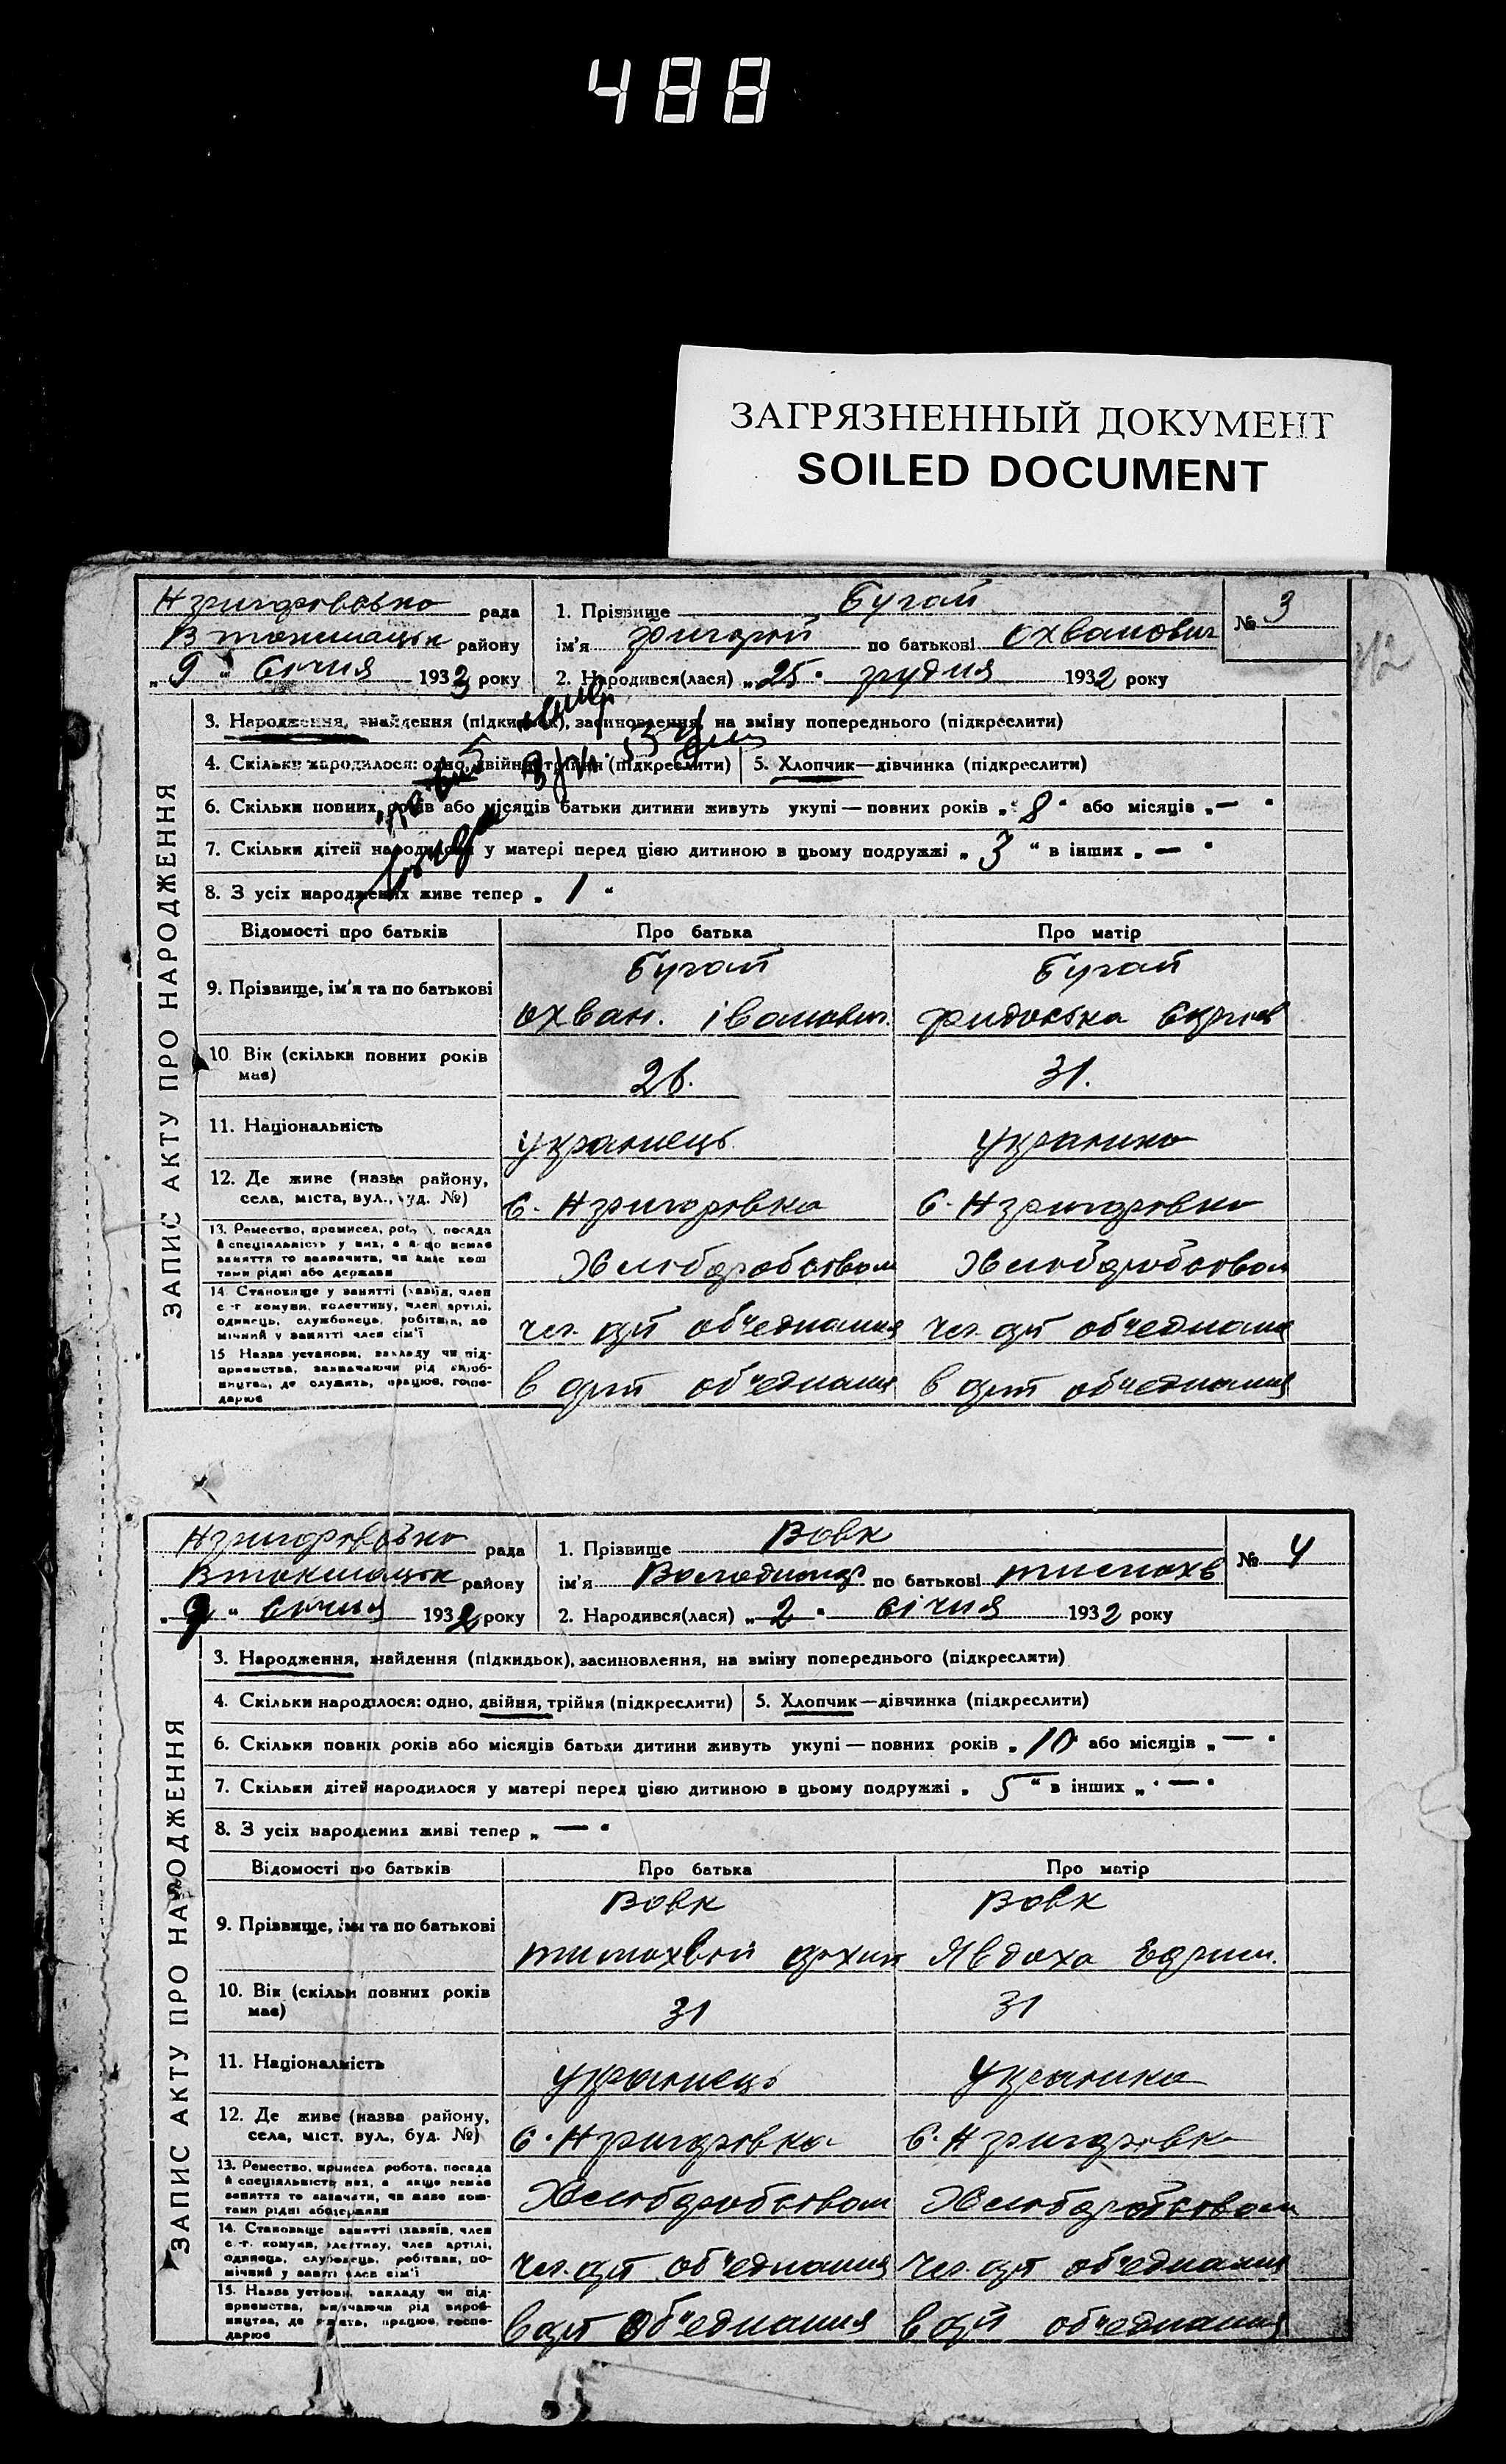 488
ЗАГРЯЗНЕННЫЙ ДОКУМЕНТ
SOILED DOCUMENT
ЗАПИС АКТУ ПРО НАРОДЖЕННЯ
рада
району
„ 9 “ січня 1933 року
1. Прізвище Бугай
ім'я Григорій по батькові Охванович
№ 3
2. Народився(лася) „ 25 “ грудня 1932 року
3. Народження, знайдення (підкидьок), засиновлення, на зміну попереднього (підкреслити)
4. Скільки народилося: одно, двійня, трійня (підкреслити) 5. Хлопчик—дівчинка (підкреслити)
6. Скільки повних років або місяців батьки дитини живуть укупі — повних років „ 8 “ або місяців „ — “
7. Скільки дітей народилося у матері перед цією дитиною в цьому подружжі „ 3 “ в інших „ — “
8. З усіх народжених живе тепер „ 1 “
Відомості про батьків Про батька Про матір
Бугай Бугай
9. Прізвище, ім'я та по батькові Охван. Іванович
10. Вік (скільки повних років має) 26. 31.
11. Національність українець українка
12. Де живе (назва району, села, міста, вул., буд. №) С. Нгригоровка С. Нгригоровка
13. Ремество, промисел, робота, посада й спеціальність у них, а якщо немає заняття то зазначити, чи живе коштами рідні або держави Хлеборобством Хлеборобством
14. Становище у занятті (хазяїн, член с.-г. комуни, колективу, член артілі, одинець, службовець, робітник, помічний у занятті член сім'ї
чл. арт об'єднання чл. арт об'єднання
15. Назва установи, закладу чи підприємства, зазначаючи рід виробництва, де служить, працює, господарює
в арт об'єднання в арт об'єднання
ЗАПИС АКТУ ПРО НАРОДЖЕННЯ
рада
району
„ 9 “ січня 1932 року
1. Прізвище Вовк
ім'я Володимир по батькові Тимохв
№ 4
2. Народився(лася) „ 2 “ січня 1932 року
3. Народження, знайдення (підкидьок), засиновлення, на зміну попереднього (підкреслити)
4. Скільки народилося: одно, двійня, трійня (підкреслити) 5. Хлопчик—дівчинка (підкреслити)
6. Скільки повних років або місяців батьки дитини живуть укупі — повних років „ 10 “ або місяців „ — “
7. Скільки дітей народилося у матері перед цією дитиною в цьому подружжі „ 5 “ в інших „ — “
8. З усіх народжених живі тепер „ — “
Відомості про батьків Про батька Про матір
Вовк Вовк
9. Прізвище, імя та по батькові Тимохвій Архип Явдоха
10. Вік (скільки повних років має) 31 31
11. Національність українець українка
12. Де живе (назва району, села, міст, вул., буд. №) С. Нгригоровка С. Нгригоровка
13. Ремество, промисел, робота, посада й спеціальність них, а якщо немає заняття то зазначити, чи живе коштами рідні або держави Хлеборобством Хлеборобством
14. Становище занятті (хазяїн, член с.-г. комуни, колективу, член артілі, одинець, службовець, робітник, помічний у занятті член сім'ї
чл. арт об'єднання чл. арт об'єднання
15. Назва установи, закладу чи підприємства, зазначаючи рід виробництва, де служить, працює, господарює
в арт об'єднання в арт об'єднання